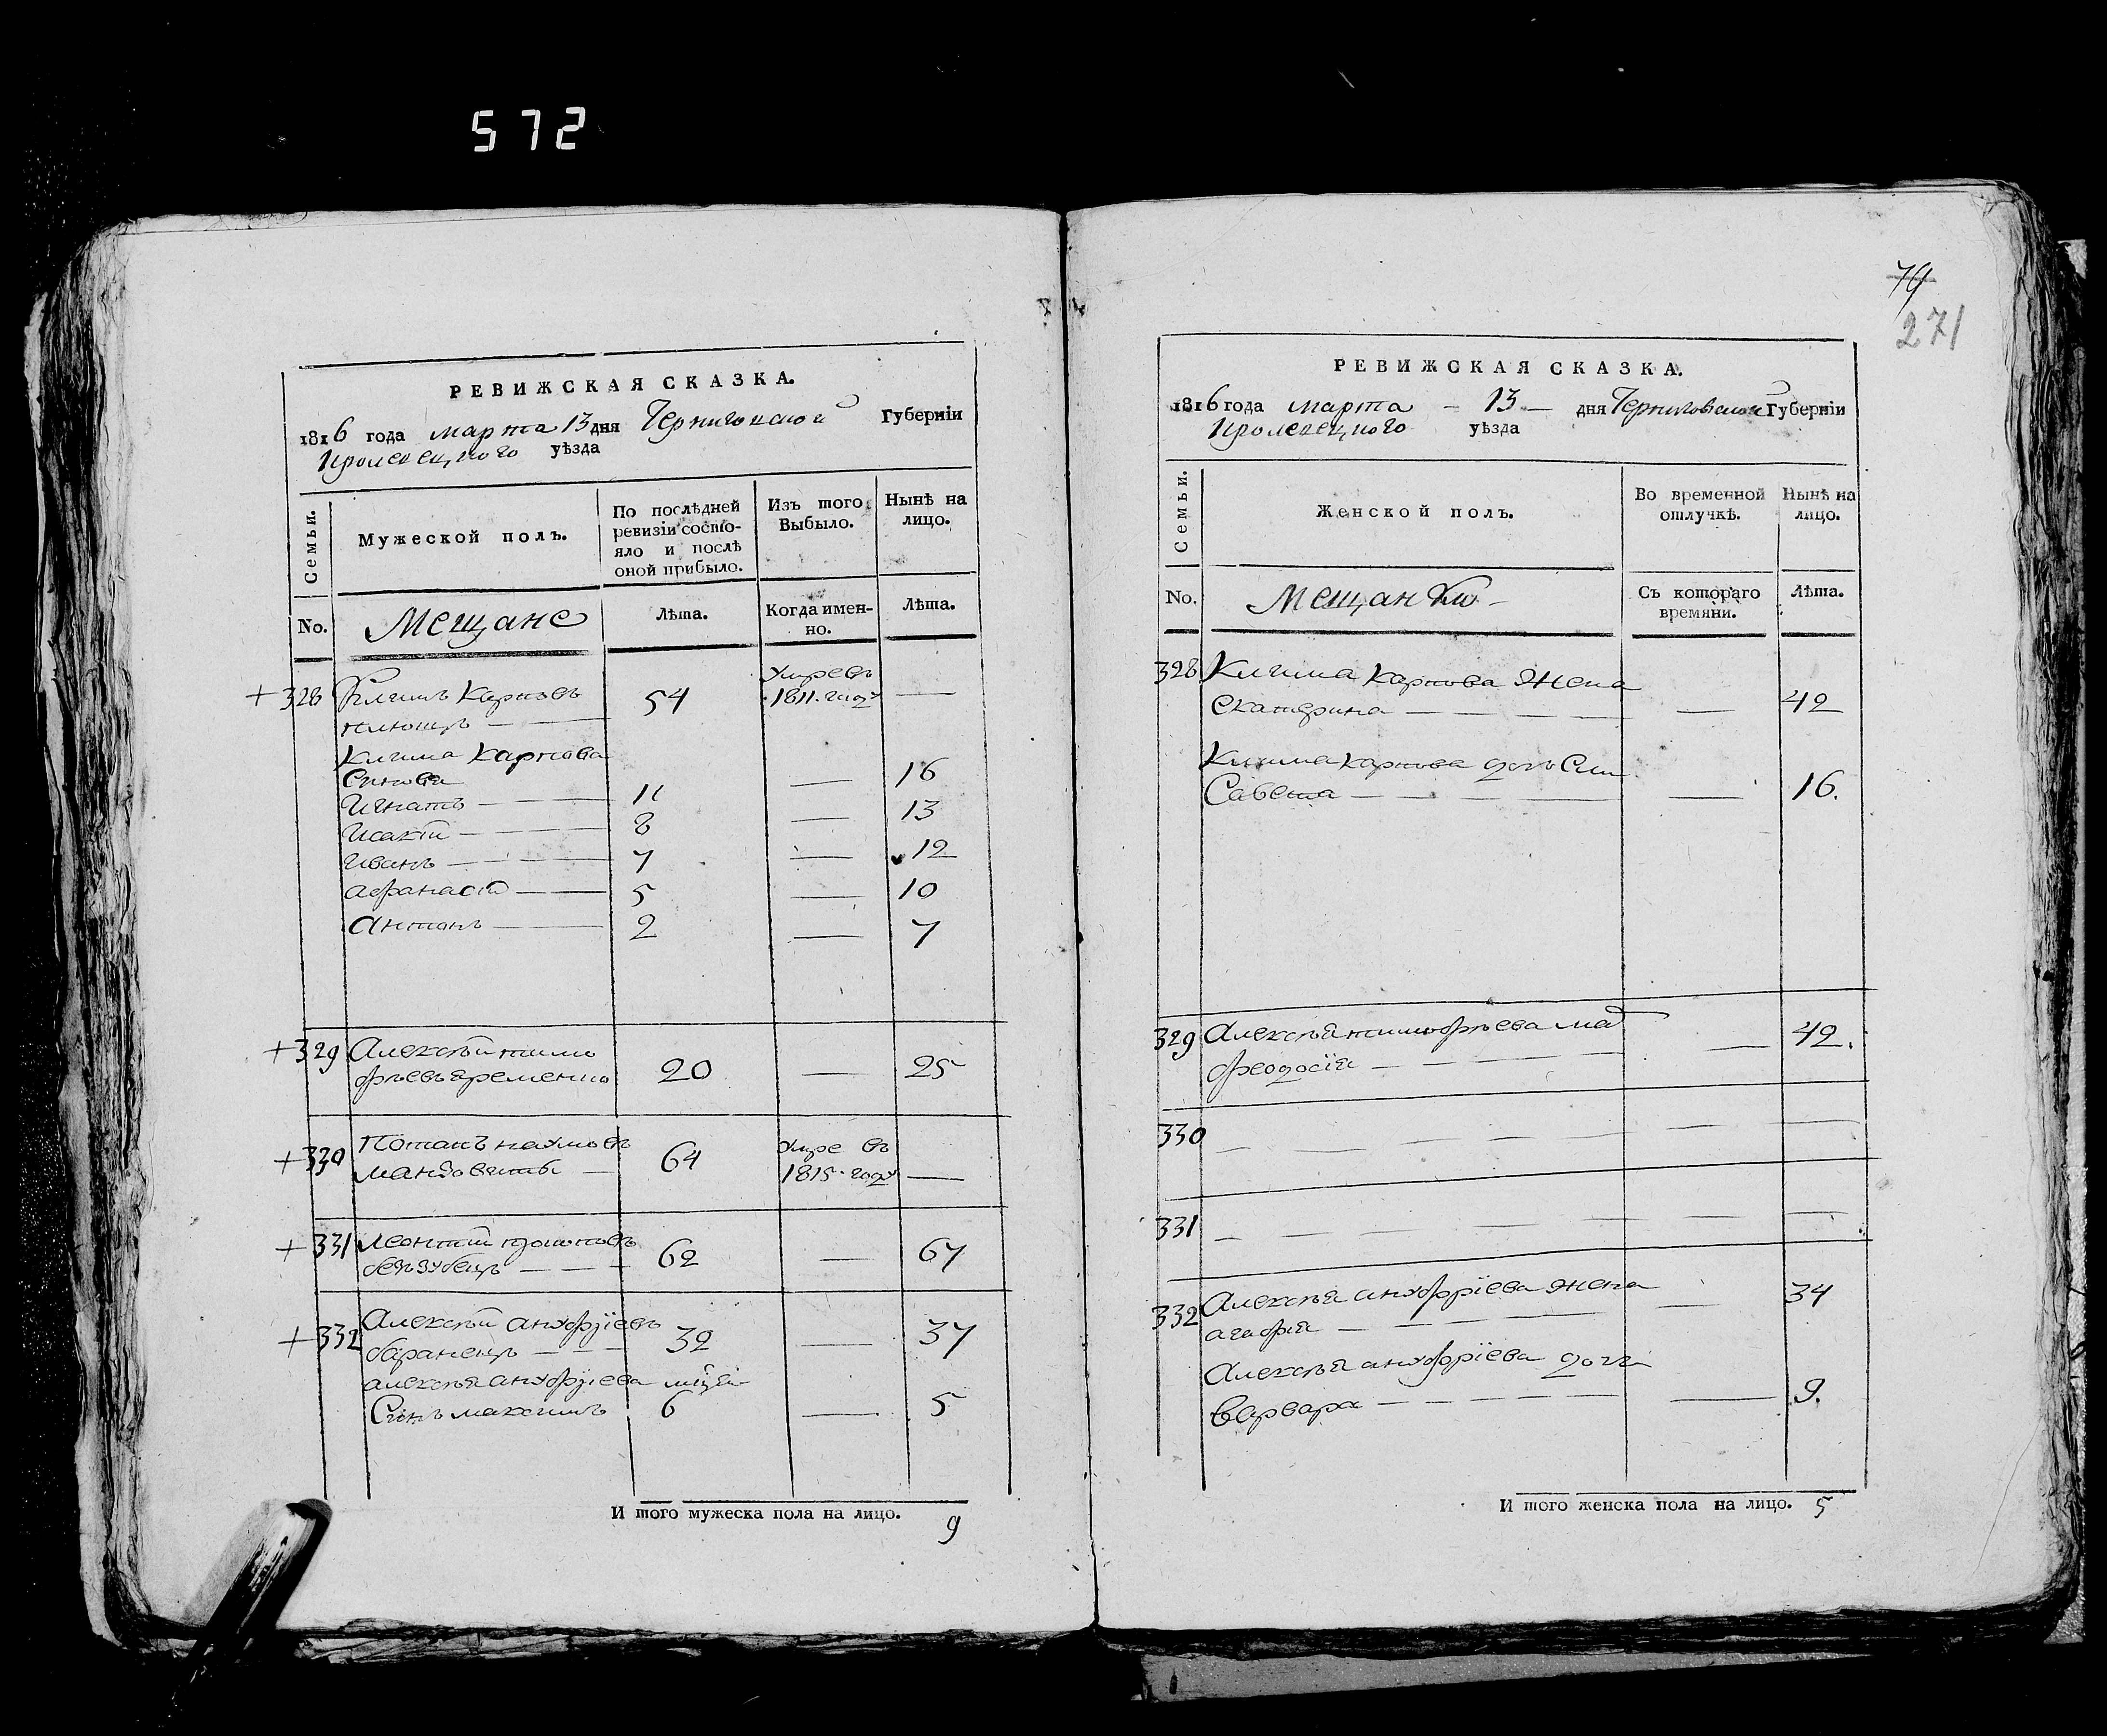 572
РЕВИЖСКАЯ СКАЗКА.
1816 года марта 13 дня Черниговской Губерніи
Кролевецкого уѣзда
Семьи.
Мужеской полъ.
По послѣдней ревизіи состояло и послѣ оной прибыло.
Изъ того Выбыло.
Нынѣ на лицо.
No.
Мещане
Лѣта.
Когда именно.
Лѣта.
+ 328 Климъ Карповъ 54 умре въ 1811. году —
Клима Карпова
Синови
Игнатъ — 11 — 16
Исакій — 8 — 13
Иванъ — 7 — 12
Афанасій — 5 — 10
Антонъ — 2 — 7
+ 329 Алексѣй тимо
фѣевъ Яременко 20 — 25
+ 330 Потапъ наумовъ 64 умре въ
1815. году —
+ 331 Леонтій
безъзубецъ — 62 — 67
+ 332 Алексѣй ануфріевъ
баранецъ — 32 — 37
алексѣя ануфріева
Синъ максимъ 6 — 5
И того мужеска пола на лицо. 9
79
271
РЕВИЖСКАЯ СКАЗКА.
1816 года марта — 13 — дня Черниговской Губерніи
Кролевецкого уѣзда
Семьи.
Женской полъ.
Во временной отлучкѣ.
Нынѣ на лицо.
No.
Мещанки
Съ котораго времяни.
Лѣта.
328 Клима Карпова Жена
Екатерина — — 42
Клима карпова
— — 16.
329 Алексѣя тимофѣева
феодосія — — 42.
330 — — —
331 — — —
332 Алексѣя ануфріева Жена
агафія — — 34
Алексѣя ануфріева дочь
варвара — — 9.
И того женска пола на лицо. 5